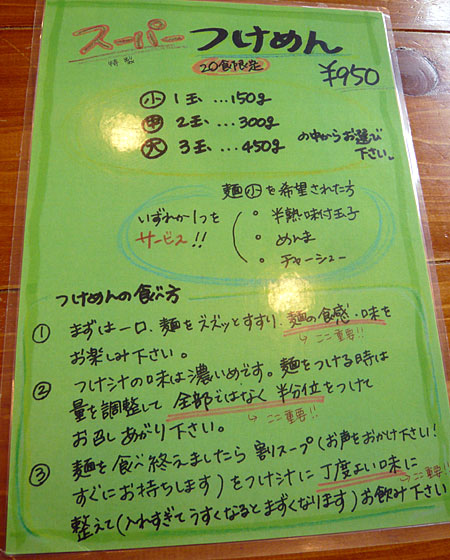 スーパーつけめん
特製
20食限定
¥950
㊥ 1玉 ...150g
㊥ 2玉 ...300g
㊥ 3玉 ...450g
の中からお選び
下さい。
麺㊥を希望された方
いずれか1つを
サービス!!
・半熟味付玉子
・めんま
・チャーシュー
つけめんの食べ方
① まずは一口、麺をズズッとすすり、麺の食感・味を
お楽しみ下さい。
ここ重要!!
② つけ汁の味は濃いめです。麺をつける時は
量を調整して 全部ではなく 半分位をつけて
お召しあがり下さい。
ここ重要!!
③ 麺を食べ終えましたら 割りスープ(お声をおかけ下さい!
すぐにお持ちします)をつけ汁に 丁度よい味に
ここ重要!!
整えて(入れすぎてうすくなるとまずくなります)お飲み下さい